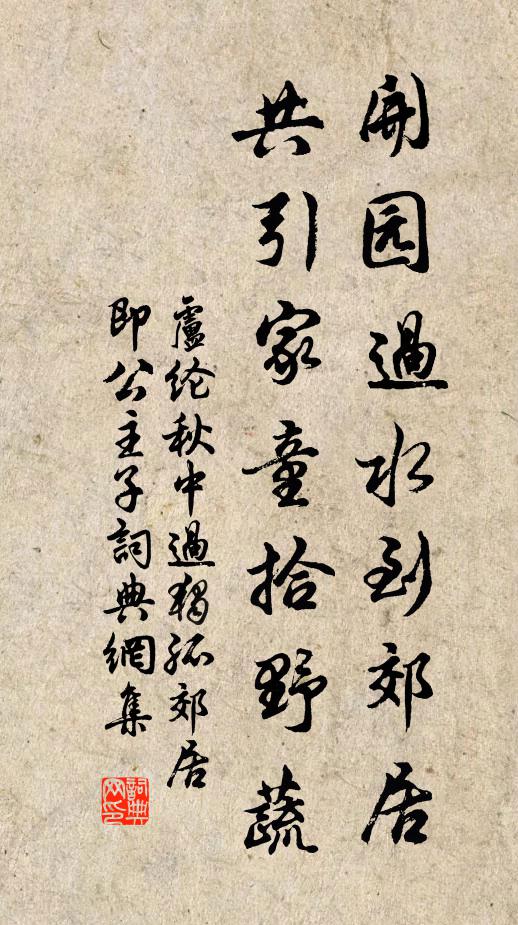 開园過水到郊居
共引家童拾野蔬
盧纶秋中過獨孤郊居
即公主子詞典網集
詞典网印